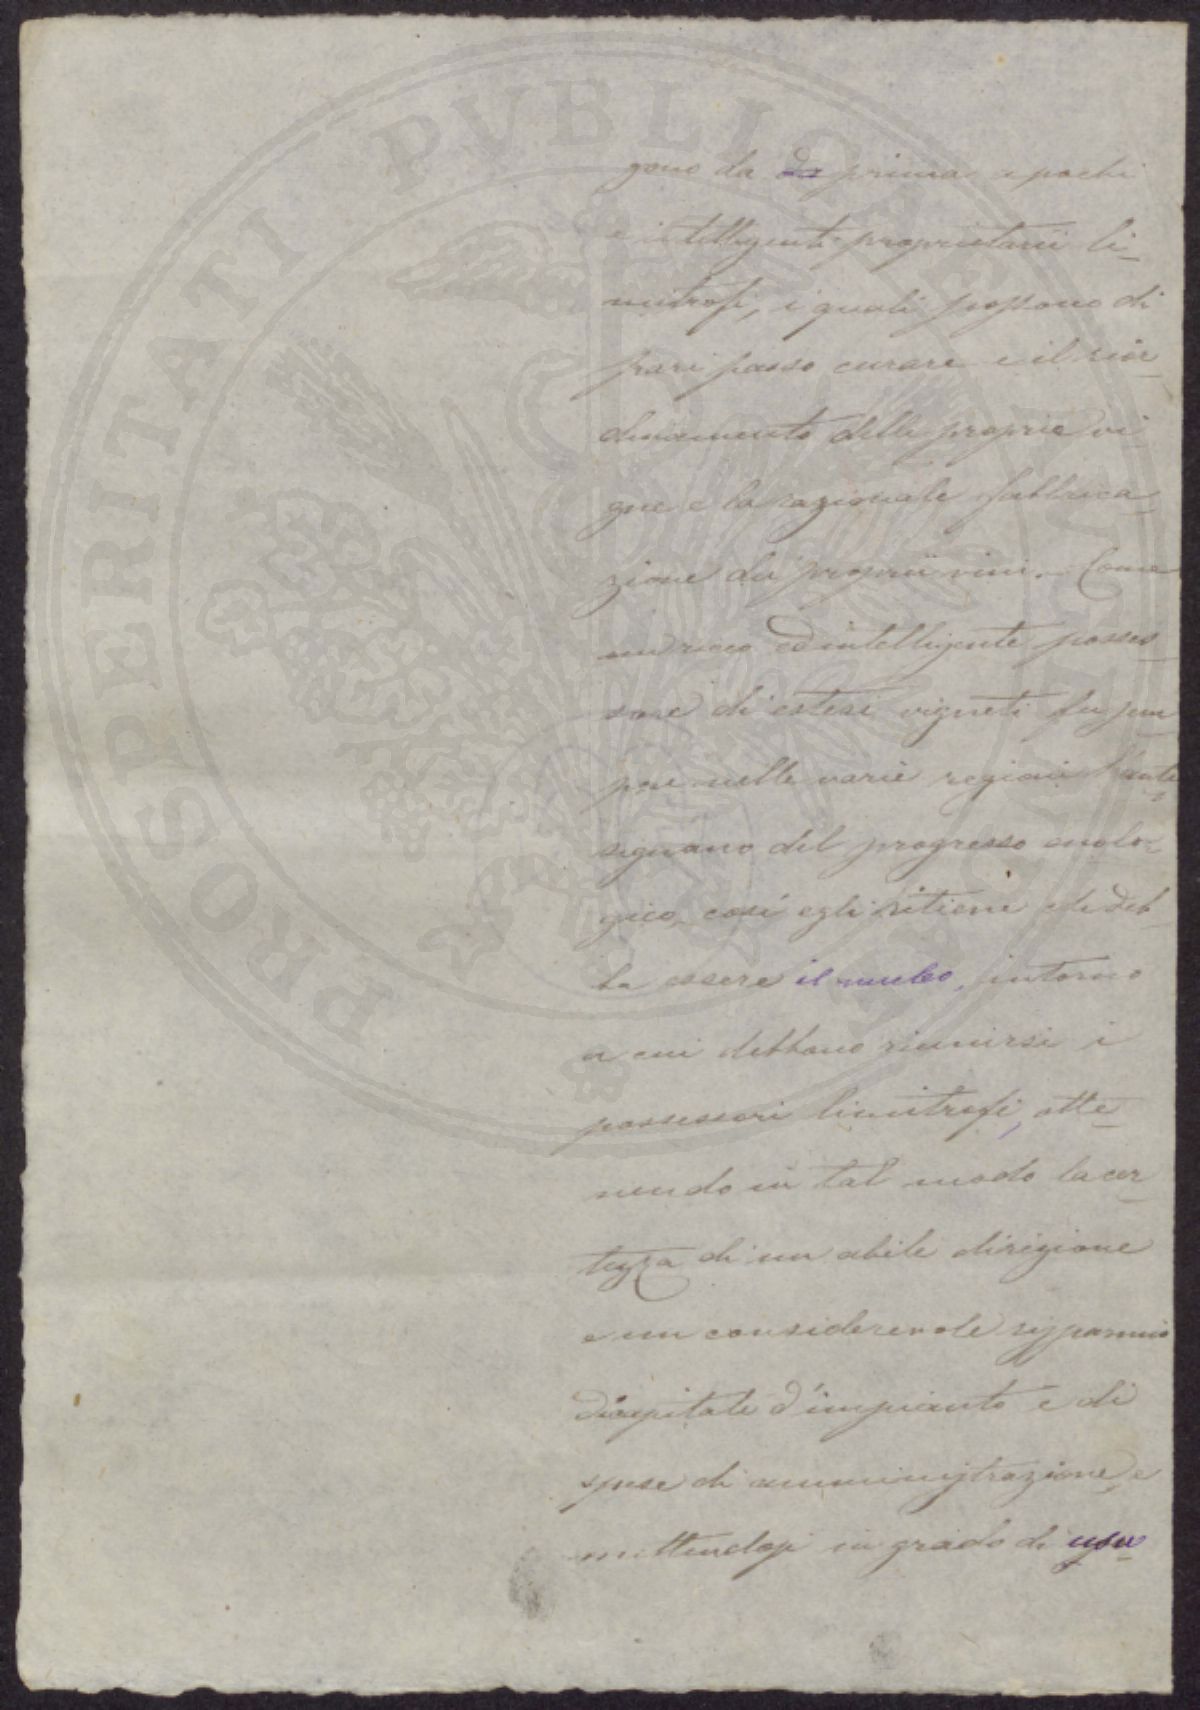 PROSPERITATI PVBLICAE AVGENDAE
gono da da prima i pochi
e intelligenti proprietarii li-
mitrofi, i quali possono di
pari passo curare e il rior-
dinamento delle proprie vi
gne e la razionale fabbrica-
zione dei proprii vini. Come
un ricco ed intelligente posses-
sore di estesi vigneti fu sem-
pre nelle varie regioni l'ante-
signano del progresso enolo-
gico, così egli ritiene che deb-
ba essere il nucleo, intorno
a cui debbono riunirsi i
possessori limitrofi, otte-
nendo in tal modo la cer-
tezza di un abile direzione
e un considerevole risparmio
di capitale d'impianto e di
spese di amministrazione, e
mettendosi in grado di